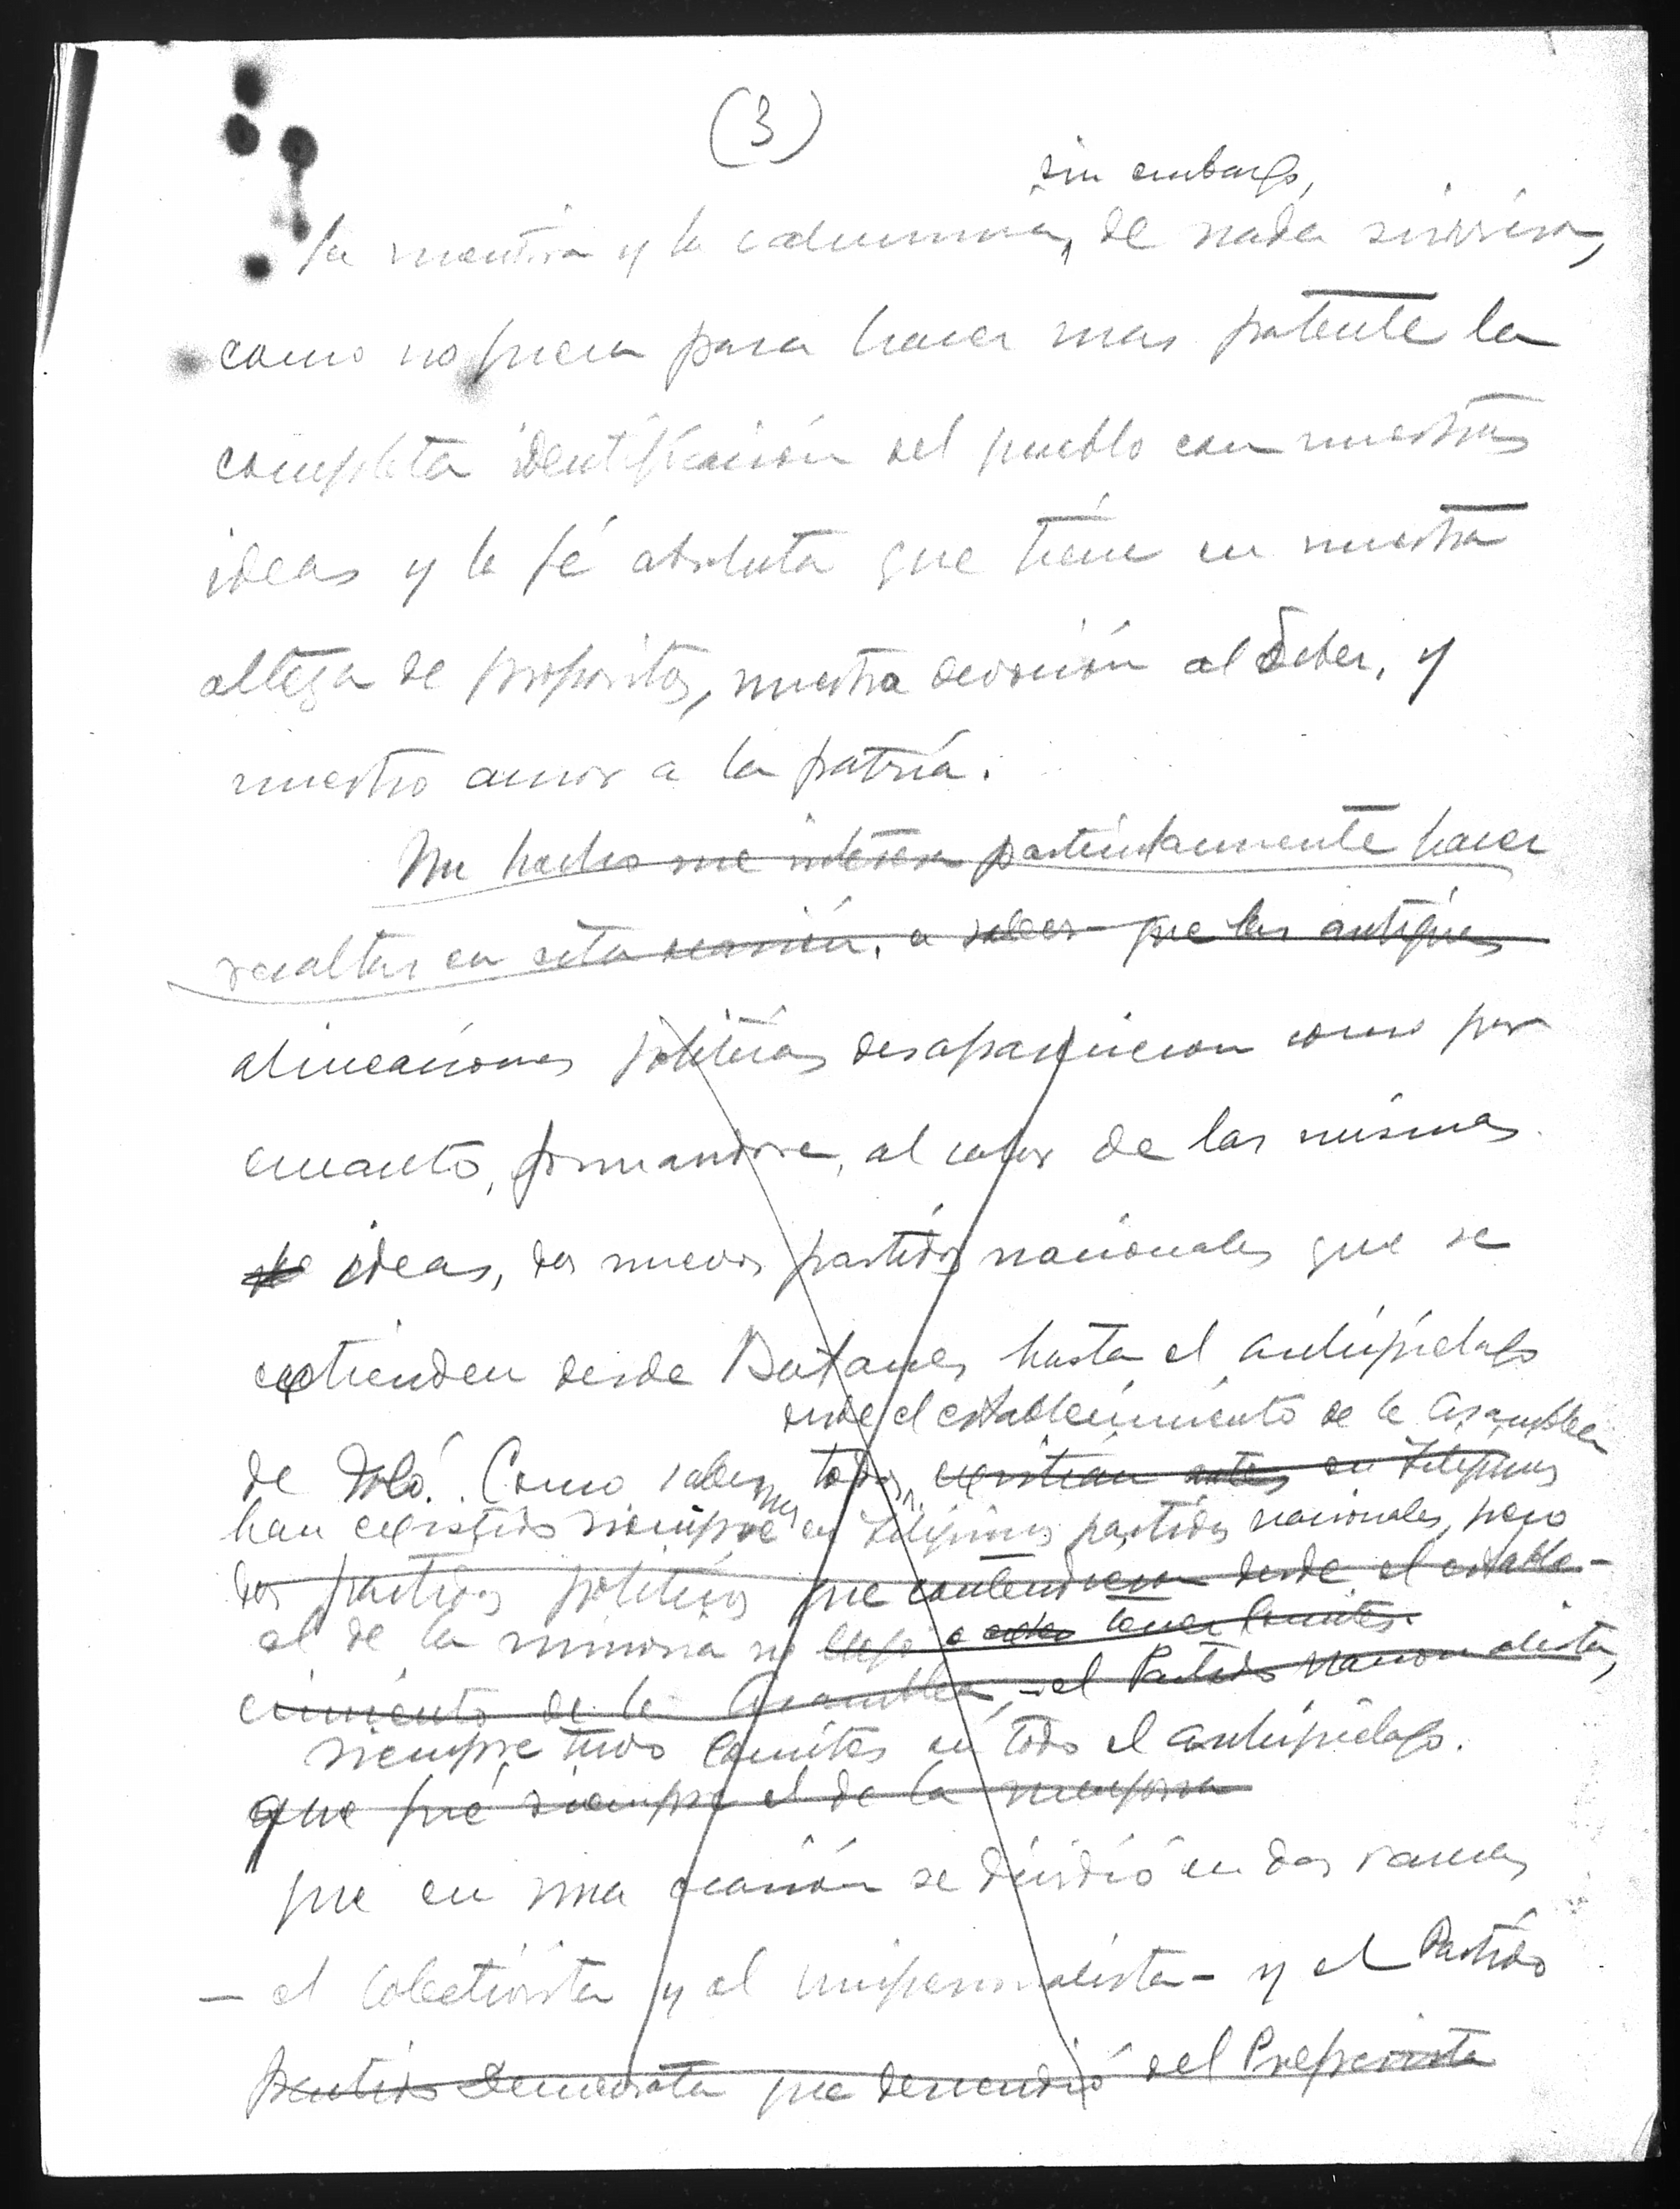 (3)
sin embargo,
la mentira y la calumnia, de nada sirvieron,
como no fuera para hacer mas patente la
completa identificación del pueblo con nuestras
ideas y la fé absoluta que tiene en nuestra
alteza de propositos, nuestra devoción al deber, y
nuestro amor a la patria.
Un hecho me interesa particularmente hacer
resaltar en esta ocasión, a saber que las antiguas
alineaciones politicas desaparecieron como por
encanto, formandose, al calor de las mismas
ideas, dos nuevos partidos nacionales que se
extienden desde Batanes hasta el archipielago
desde el establecimiento de la Asamblea
de Joló. Como sabemos todos, existian antes en Filipinas
han existido siempre en Filipinas partidos nacionales, pero
dos partidos politicos que contendieron desde el estable-
el de la minoria no llego a tener comites
cimiento de la Asamblea, - el Partido Nacionalista,
siempre tuvo comites en todo el archipielago.
que fué siempre el de la mayoria
que en una ocasión se dividió en dos ramas
- el colectivista y el unipersonalista - y el Partido
Partido Democrata que descendió del Progresista